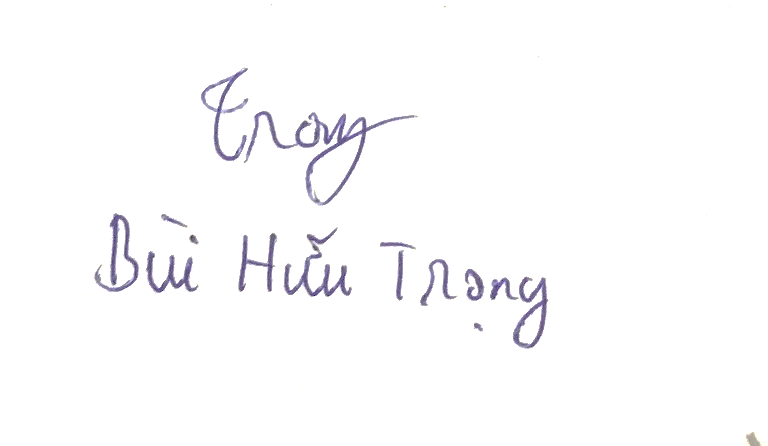 Trọng
Bùi Hữu Trọng